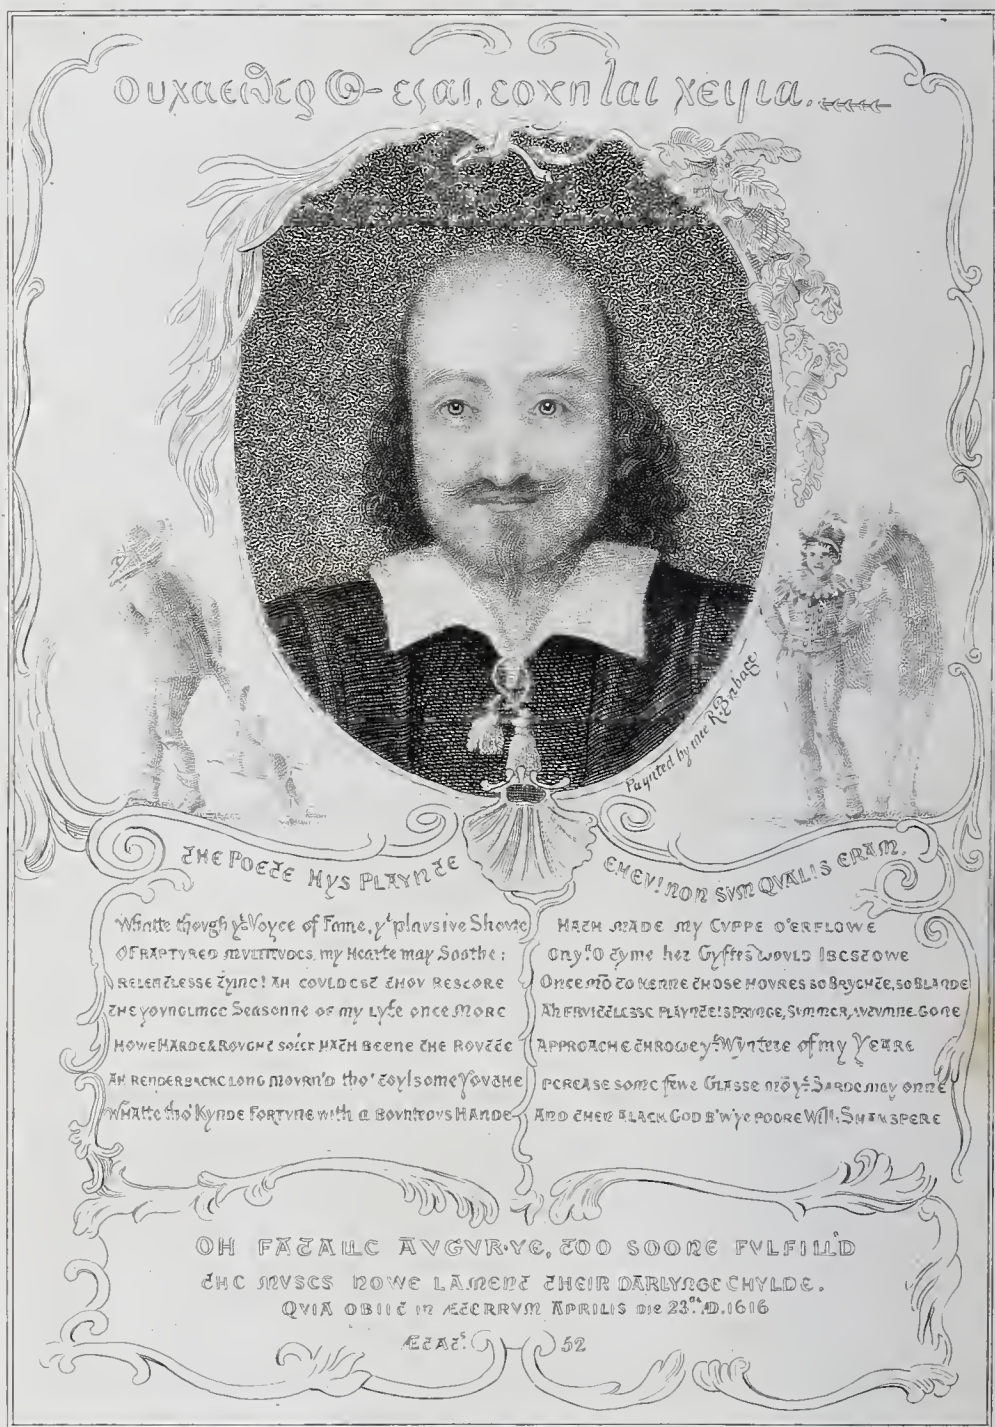 ουχαειθερ Θ- εςαι. εοχηlαι χειμια.
Paynted by mee R Burbage
THE POETE HYS PLAYNTE
EHEV! NON SVM QVALIS ERAM.
Whatte thovgh yᵉ Voyce of Fame, yᵉ plavsive Shovte
OF RAPTVRED MVLTITVDES, my Hearte may Soothe:
RELENTLESSE TYME! AH COVLDEST THOV RESTORE
THE YOVNGLINGE Seasonne OF my Lyfe once MORE
HOWE HARDE & ROVGHE soe'er HATH BEENE THE ROVTTE
AH RENDER BACKE LONG MOVRN'D tho' toylsome Yovthe
WHAtte tho' Kynde FORTVNE with a BOVNTEOVS HANDE
HATH MADE MY CVPPE O'ERFLOWE
Ony O TYME her Gyftes WOVLD BESTOWE
ONCE MO TO KENNE THOSE HOVRES SO BRYGHTE, SO BLANDE
Ah FRVITELESSE PLAYNTE! SPRYNGE, SVMMER, AVTVMNE GONE
APPROACHE THROWE yᵉ Wyntere of my YEARE
PCREASE some fewe GLASSE mo yᵉ BARDE may onne
AND THEN ALACK GOD B'Wye POORE Will: SHAKSPERE
OH FATALLE AVGVRYE, TOO SOONE FVLFILL'D
THE MVSES NOWE LAMENT THEIR DARLYNGE CHYLDE.
QVIA OBIIT IN ÆTERRVM APRILIS DIE 23ᵒ AD. 1616
ÆTATˢ. 52